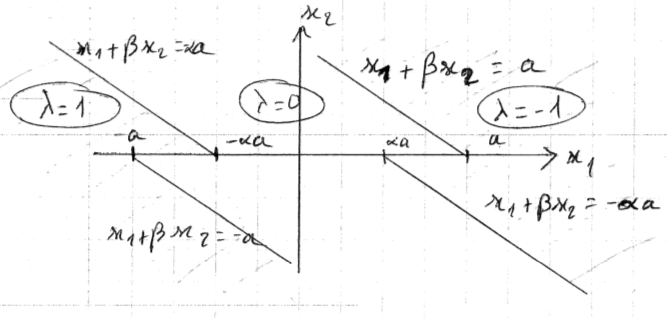 x₂
x₁+βx₂=αa
x₁+βx₂=a
λ=1
λ=0
λ=-1
-a
-αa
αa
a
x₁
x₁+βx₂=-a
x₁+βx₂=-αa